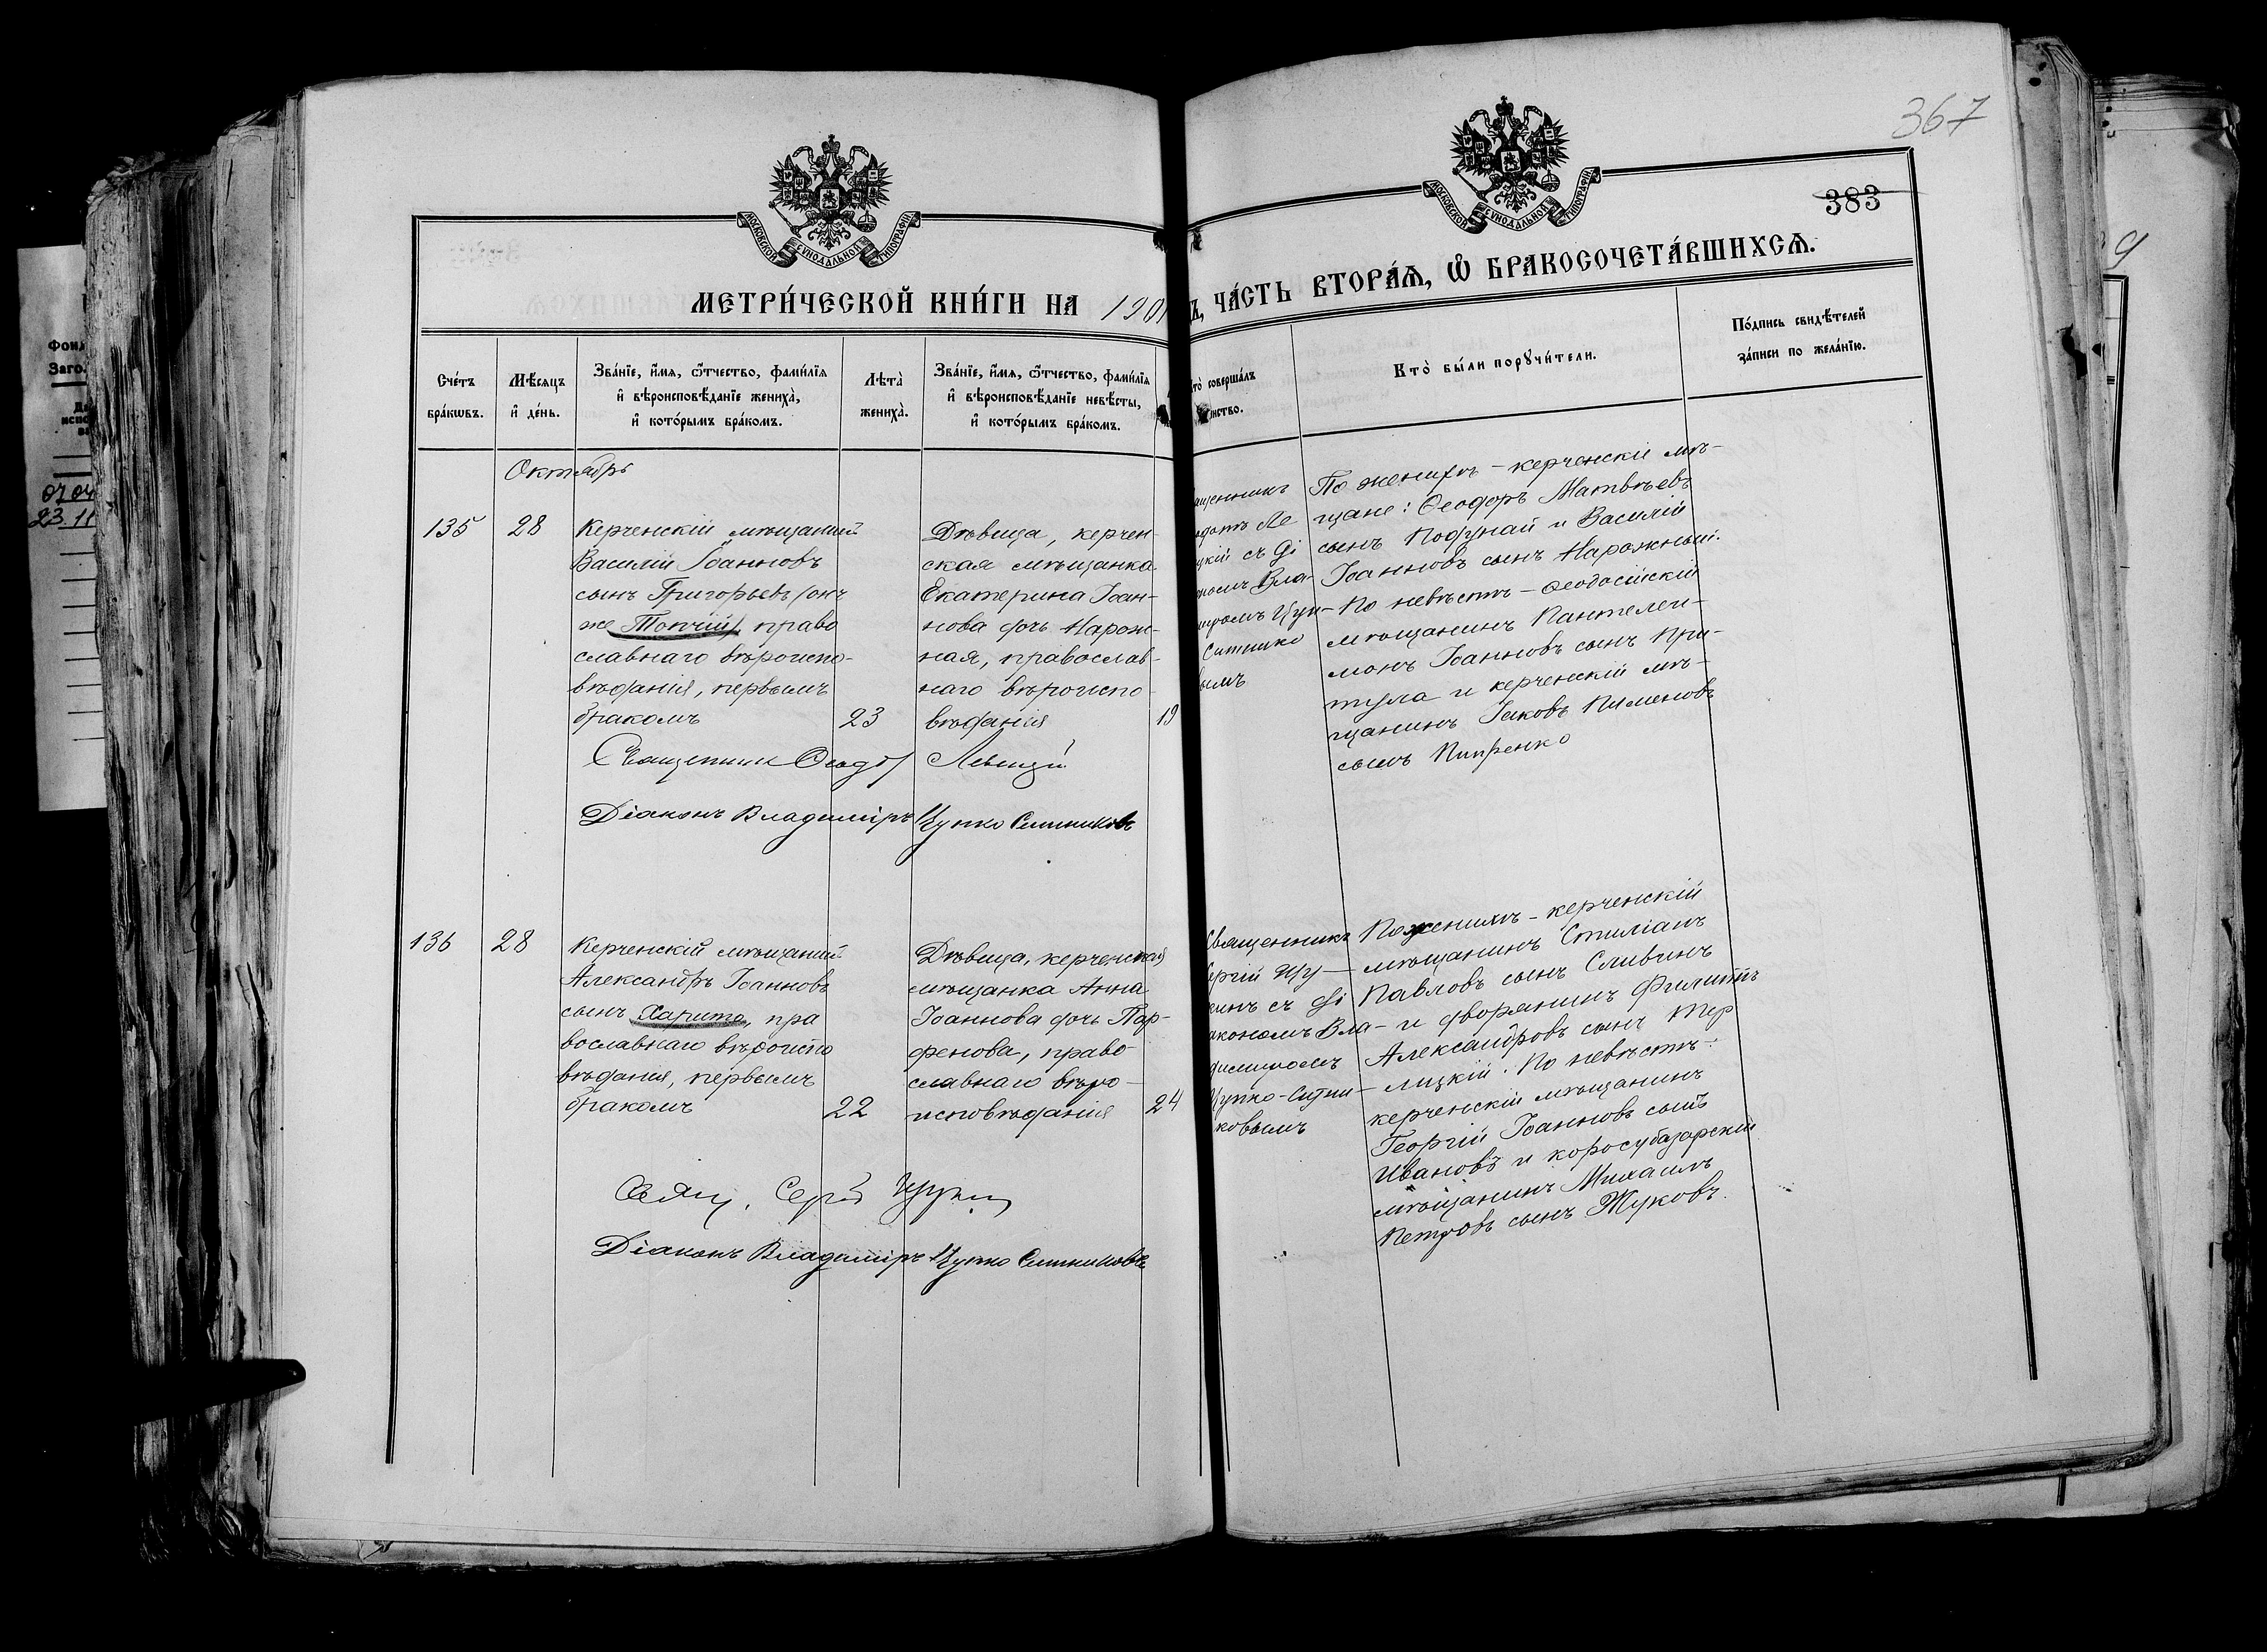 367
383
МОСКОВСКОЙ СѴНОДАЛЬНОЙ ТИПОГРАФІИ
МОСКОВСКОЙ СѴНОДАЛЬНОЙ ТИПОГРАФІИ
МЕТРИ́ЧЕСКОЙ КНИ́ГИ НА 1901
Ъ, ЧА́СТЬ ВТОРА́Ѧ, Ѡ҆ БРАКОСОЧЕТА́ВШИХСѦ.
Сче́тъ
бра́кѡвъ.
Мѣ́сяцъ
и҆ де́нь.
Зва́нїе, и҆́мѧ, ѻ҆́тчество, фами́лїѧ
и҆ вѣроисповѣ́данїе жениха̀,
и҆ кото́рымъ бра́комъ.
Лѣта̀
жениха̀.
Зва́нїе, и҆́мѧ, ѻ҆́тчество, фами́лїѧ
и҆ вѣроисповѣ́данїе невѣ́сты,
и҆ кото́рымъ бра́комъ.
то̀ соверша́лъ
инство.
Кто̀ бы́ли порꙋчи́тели.
По́дпись свидѣ́телей
за́писи по жела́нїю.
Октябрь
135
28
Керченскій мѣщанин
Василій Іоанновъ
сынъ Григорьевъ (онъ
же Топчій), право
славнаго вѣроиспо-
вѣданія, первымъ
бракомъ
23
Дѣвица, керчен-
ская мѣщанка
Екатерина Іоан-
нова дочь Нарож-
ная, православ-
наго вѣроиспо-
вѣданія
19
ященникъ
одотъ Ле
цкій съ Ді
Вла-
Цуп-
Ситнико
вымъ
По женихѣ - керченскіе мѣ-
щане: Ѳеодоръ Матвѣевъ
сынъ Подунай и Василій
Іоанновъ сынъ Нарожный.
По невѣстѣ - Ѳеодосійскій
мѣщанинъ Пантелеи-
монъ Іоанновъ сынъ При-
тула и керченскій мѣ-
щанинъ Іаковъ Пименовъ
сынъ Пипренко
Священникъ Ѳеодот Левицкій
Діаконъ Владиміръ Цупко Ситниковъ
136
28
Керченскій мѣщанин
Александръ Іоанновъ
сынъ Харито, пра
вославнаго вѣроиспо
вѣданія, первымъ
бракомъ
22
Дѣвица, керченская
мѣщанка Анна
Іоаннова дочь Пар-
фенова, право-
славнаго вѣро-
исповѣданія
24
Священникъ
ергій Щу-
кинъ съ ді
акономъ Вла-
диміромъ
Цупко-Ситни-
ковымъ
По женихѣ - керченскій
мѣщанинъ Стиліанъ
Павловъ сынъ Сливинъ
и дворянинъ Филиппъ
Александровъ сынъ Тер
лицкій. По невѣстѣ:
керченскій мѣщанинъ
Георгій Іоанновъ сынъ
Ивановъ и коросубазарскій
мѣщанинъ Михаилъ
Петровъ сынъ Жуковъ.
Свящ. Сергій Щукин
Діаконъ Владиміръ Цупко Ситниковъ
Фонд
Заго